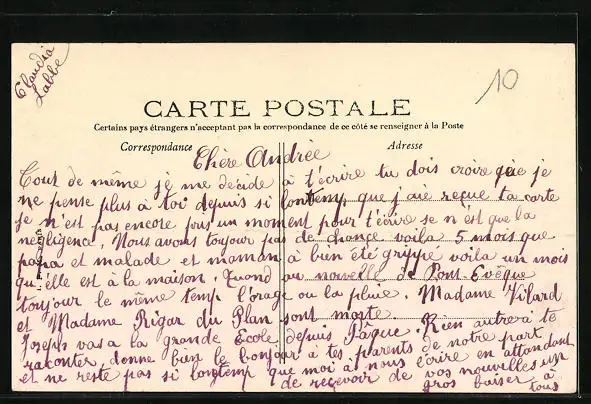 Claudia
Labbe
10
CARTE POSTALE
Certains pays étrangers n'acceptant pas la correspondance de ce côté se renseigner à la Poste
Correspondance
Adresse
Chère Andrée
Tout de même je me decide à t'écrire tu dois croire que je
ne pense plus à toi depuis si lontemp que j'aie reçue ta carte
je n'est pas encore pris un moment pour t'écrire se n'est que la
négligence. Nous avons toujour pas de chance voila 5 mois que
papa et malade et maman à bien été grippé voila un mois
qu'elle est à la maison. Quand au nouvelle de Pont-Evêque
toujour le même temp l'orage ou la pluie. Madame Vilard
et Madame Rigar du Plan sont morte.
Joseph vas a la grande Ecole depuis Pâque. Rien autre à te
raconter, donne bien le bonjour à tes parents de notre part
et ne reste pas si longtemp que moi à nous écrire en attendant
de recevoir de vos nouvelles un
gros baiser à
tous